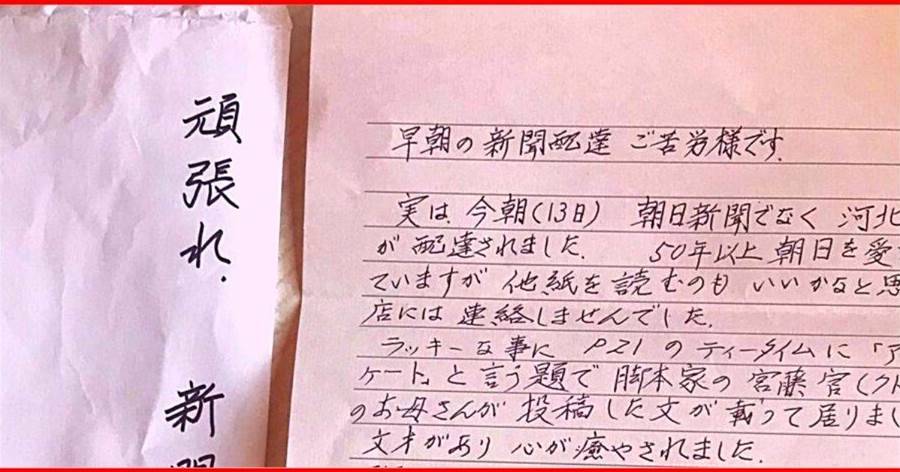 頑張れ.
新
早朝の新聞配達 ご苦労様です.
実は 今朝(13日) 朝日新聞でなく 河北
が 配達されました. 50年以上 朝日を愛
ていますが 他紙を 読むのも いいかなと思
店には 連絡しませんでした.
ラッキーな事に P21 の ティータイムに「ア
ケート」と 言う題で 脚本家の 宮藤 官(クド
のお母さんが 投稿した 文が 載って居りまし
文才があり 心が癒やされました.